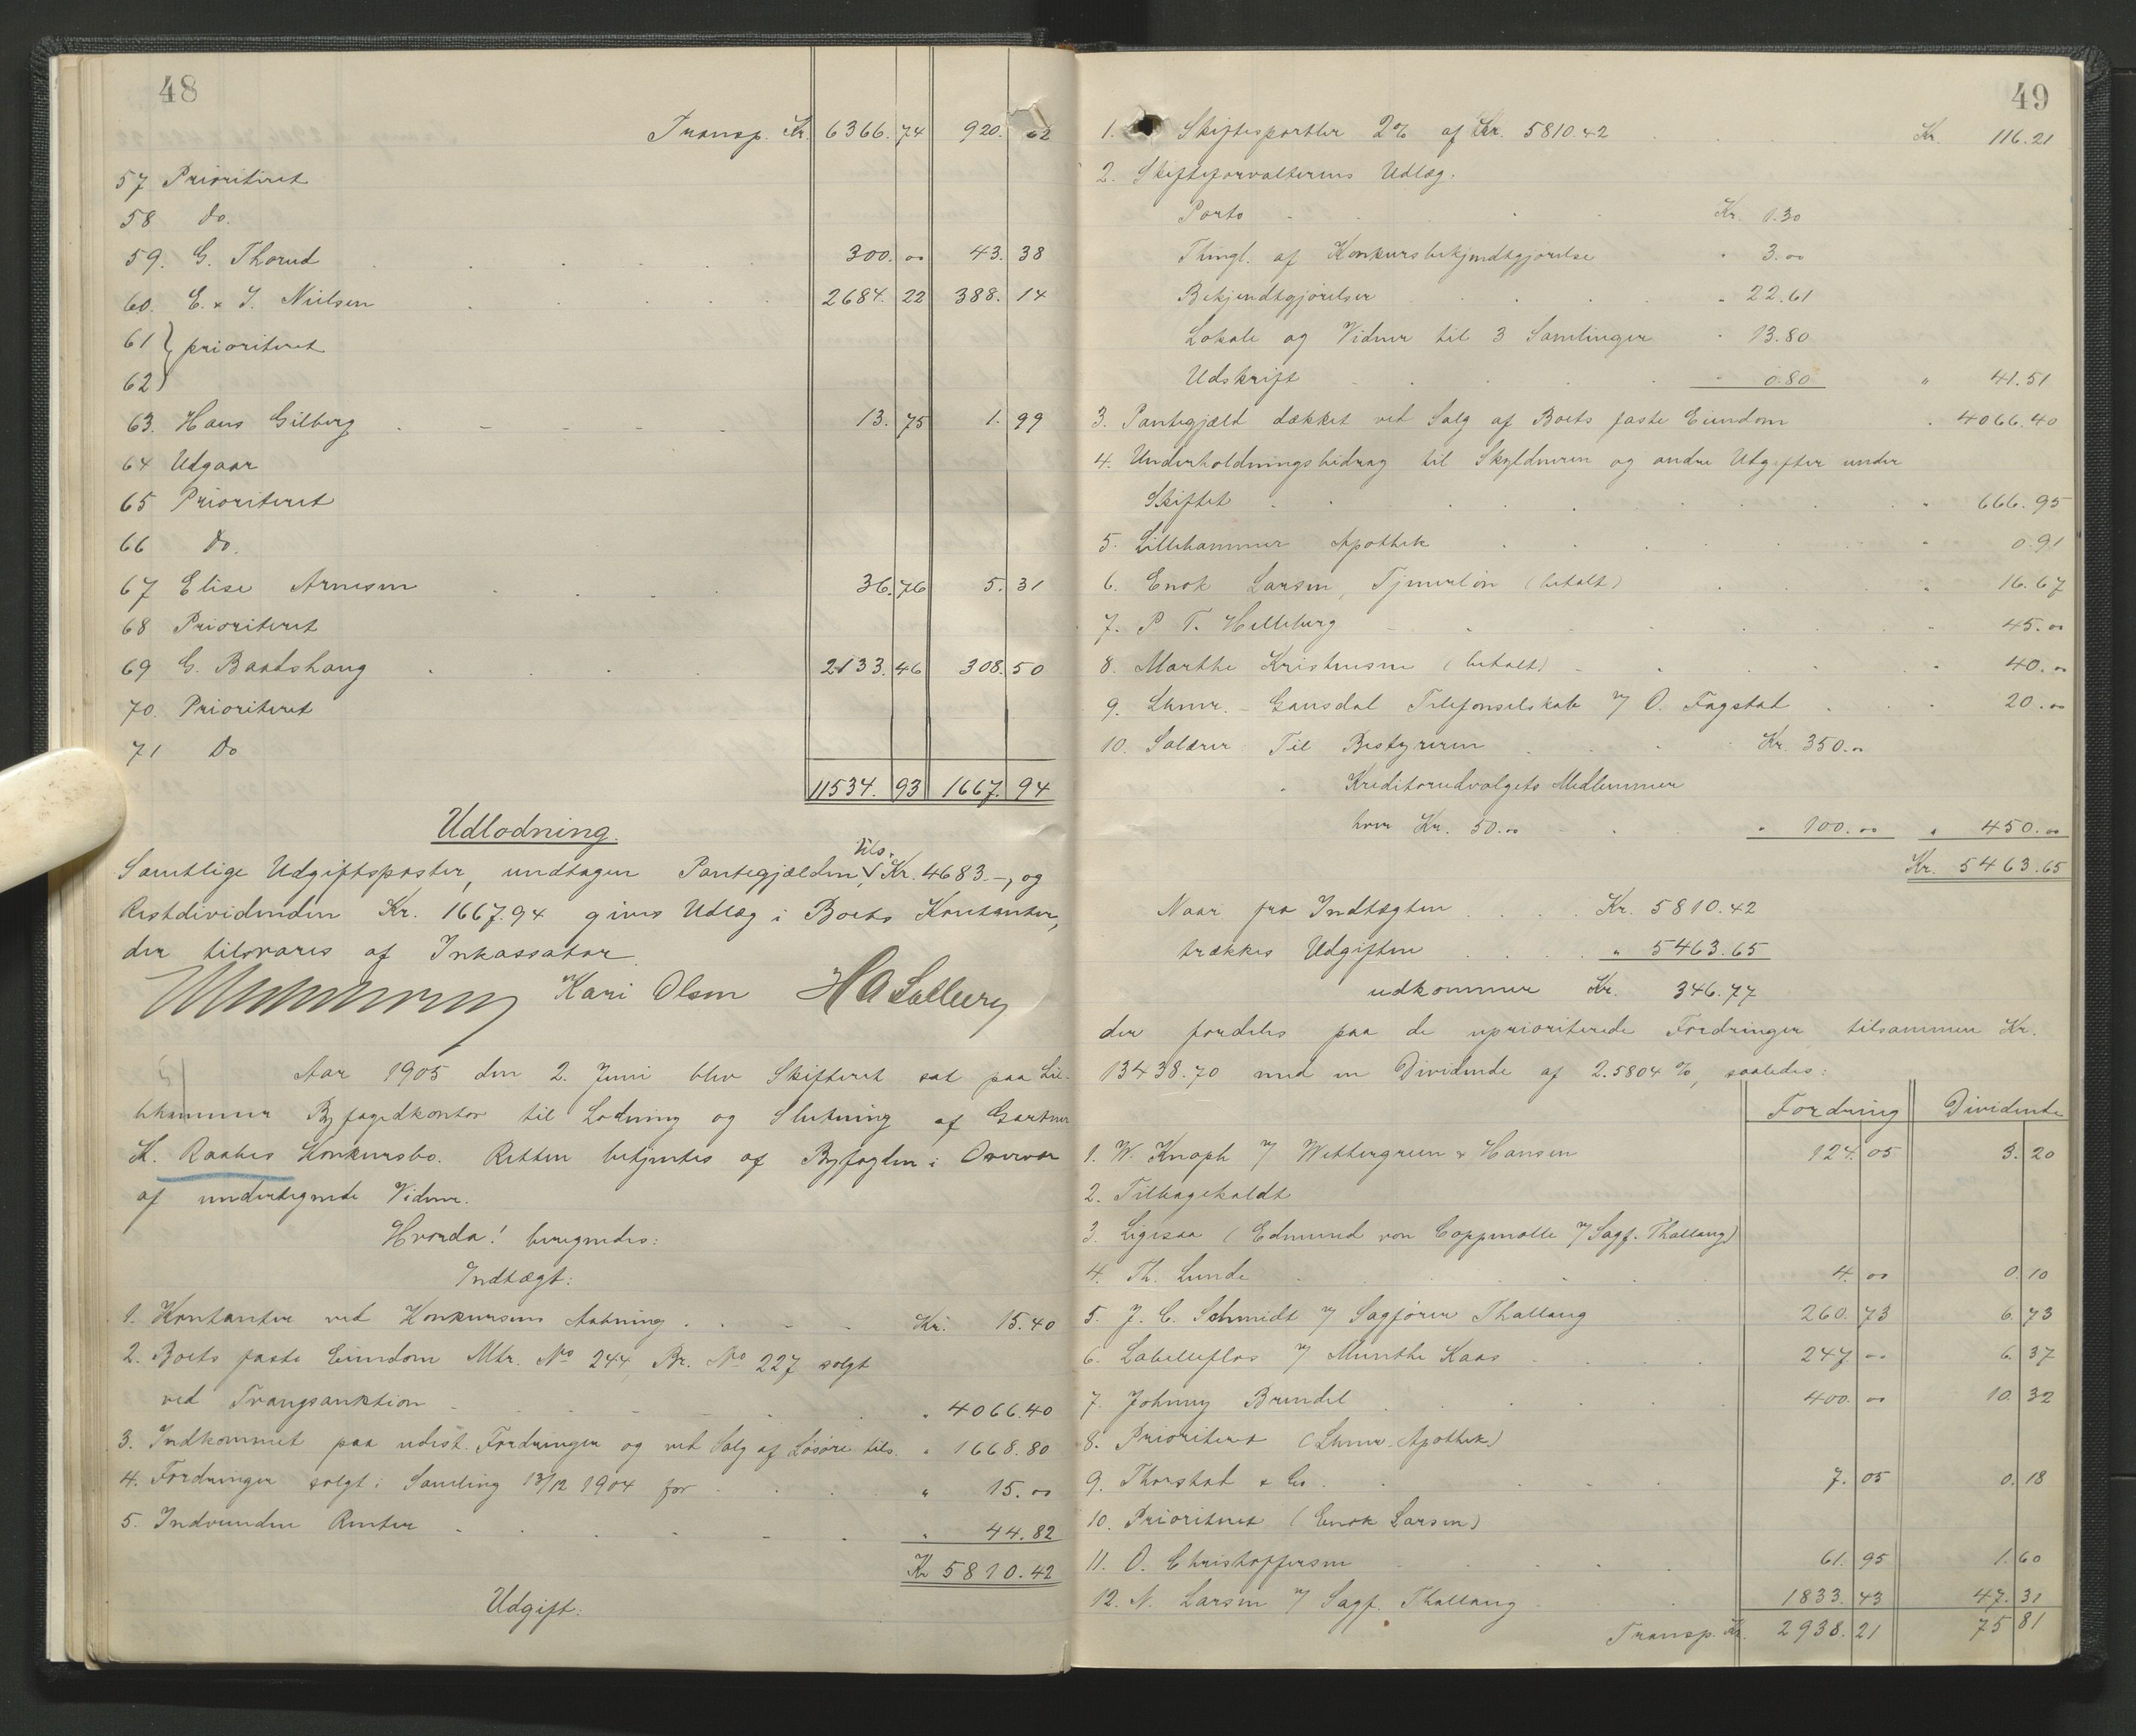 48
Transp. Kr. 6366.74 920.62
57 Prioriteret
58 do.
59. G. Thorud 300.00 43.38
60. E. & J. Nielsen 2684.22 388.14
61 } prioriteret
62 }
63. Hans Gilberg 13.75 1.99
64 Udgaar
65 Prioriteret
66 do.
67 Elise Arnesen 36.76 5.31
68 Prioriteret
69 G. Baadshaug 2133.46 308.50
70. Prioriteret
71 Do
11534.93 1667.94
Udlodning.
Samtlige Udgiftsposter, undtagen Pantegjælden, tils. Kr. 4683.-, og
Restdividenden Kr. 1667.94 gives Udlæg i Boets Kontanter,
der tilsvares af Inkassator.
Kari Olsen
Aar 1905 den 2. Juni blev Skifteret sat paa Lil-
lehammer Byfogedkontor til Lodning og Slutning af Gartner
K. Raabes Konkursbo. Retten betjentes af Byfogden i Overvær
af undertegnede Vidner.
Hvorda! beregnedes:
Indtægt:
1. Kontanter ved Konkursens Aabning Kr. 15.40
2. Boets faste Eiendom Mtr. No 244, Br. No 227 solgt
ved Tvangsauktion " 4066.40
3. Indkommet paa udest. Fordringer og ved Salg af Løsøre tils. " 1668.80
4. Fordringer solgt i Samling 13/12 1904 for " 15.00
5. Indvundne Renter " 44.82
Kr 5810.42
Udgift:
49
1. Skiftesportler 2% af Kr. 5810.42 Kr. 116.21
2. Skifteforvalterens Udlæg.
Porto Kr. 1.30
Thingl. af Konkursbekjendtgjørelse " 3.00
Bekjendtgjørelser " 22.61
Lokale og Vidner til 3 Samlinger " 13.80
Udskrift " 0.80 " 41.51
3. Pantegjæld dækket ved Salg af Boets faste Eiendom " 4066.40
4. Underholdningsbidrag til Skyldneren og andre Udgifter under
Skiftet " 666.95
5. Lillehammer Apothek " 0.91
6. Enok Larsen, Tjenerløn (betalt) " 16.67
7. P. T. Helleberg " 45.00
8. Marthe Kristensen (betalt) " 40.00
9. Lhmr. - Gausdal Telefonselskab v/ O. Fagstad " 20.00
10. Salærer: Til Bestyreren Kr. 350.00
" Kreditorudvalgets Medlemmer
hver Kr. 50.00 " 100.00 " 450.00
Kr. 5463.65
Naar fra Indtægten Kr. 5810.42
trækkes Udgiften " 5463.65
udkommer Kr. 346.77
der fordeles paa de uprioriterede Fordringer tilsammen Kr.
13438.70 med en Dividende af 2.5804 %, saaledes:
Fordring Dividende
1. W. Knoph v/ Wettergreen & Hansen 124.05 3.20
2. Tilbagekaldt
3. Ligesaa (Edmund von Coppenolle v/ Sagf. Thallaug)
4. Th. Lunde 4.00 0.10
5. J. C. Schmidt v/ Sagfører Thallaug 260.73 6.73
6. Labelleflos v/ Munthe Kaas 247.00 6.37
7. Johnny Brendel 400.00 10.32
8. Prioriteret (Lhmr. Apothek)
9. Thorstad & Co. 7.05 0.18
10. Prioriteret (Enok Larsen)
11. O. Christoffersen 61.95 1.60
12. N. Larsen v/ Sagf. Thallaug 1833.43 47.31
Transp. Kr. 2938.21 75.81